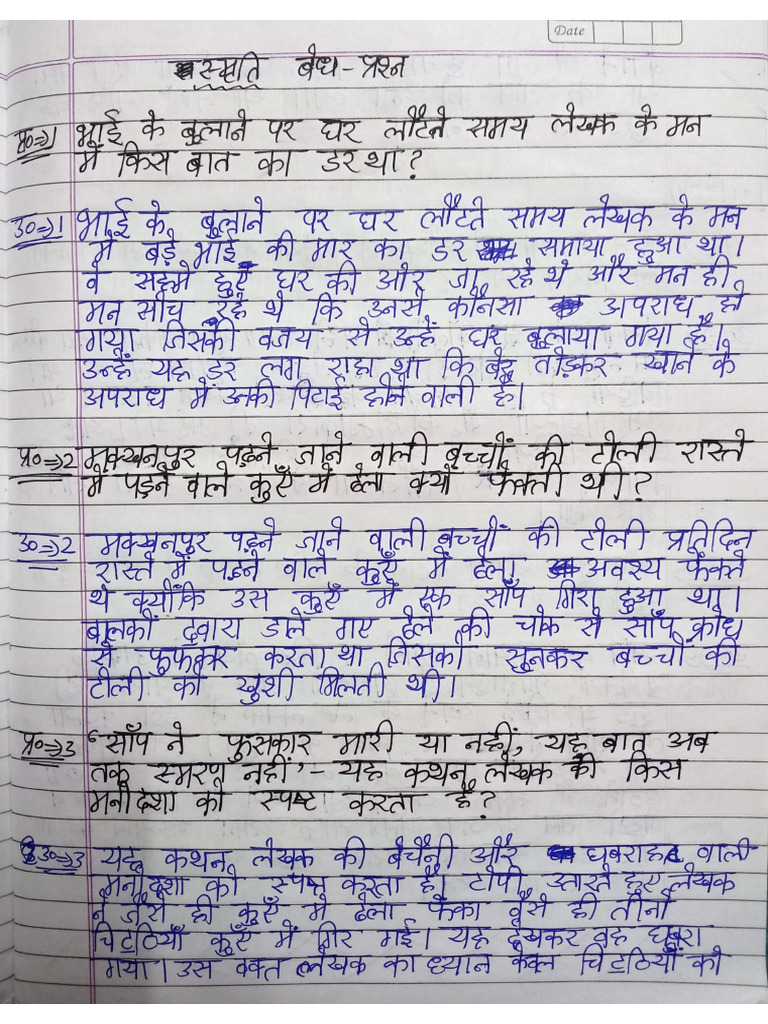 Date
स्मृति बोध-प्रश्न
प्र०⇒1 भाई के बुलाने पर घर लौटते समय लेखक के मन
में किस बात का डर था?
उ०⇒1 भाई के बुलाने पर घर लौटते समय लेखक के मन
में बड़े भाई की मार का डर समाया हुआ था।
वे सहमे हुए घर की ओर जा रहे थे और मन ही
मन सोच रहे थे कि उनसे कौनसा अपराध हो
गया जिसकी वजय से उन्हें घर बुलाया गया है।
उन्हें यह डर लग राहा था कि बेर तोड़कर खाने के
अपराध में उनकी पिटाई होने वाली है।
प्र०⇒2 मक्खनपुर पढ़ने जाने वाली बच्चों की टोली रास्ते
में पड़ने वाले कुएँ में ढेला क्यों फेंकती थी?
उ०⇒2 मक्खनपुर पढ़ने जाने वाली बच्चों की टोली प्रतिदिन
रास्ते में पड़ने वाले कुएँ में ढेला अवश्य फेंकते
थे क्योंकि उस कुएँ में एक साँप गिरा हुआ था।
बालकों द्वारा डाले गए ढेले की चोक से साँप क्रोध
से फुफकार करता था जिसको सुनकर बच्चों की
टोली को खुशी मिलती थी।
प्र०⇒3 'साँप ने फुसकार मारी या नहीं, यह बात अब
तक स्मरण नहीं' - यह कथन लेखक की किस
मनोदशा को स्पष्ट करता है?
उ०⇒3 यह कथन लेखक की बेचैनी और घबराहट वाली
मनोदशा को स्पष्ट करता है। टोपी उतारते हुए लेखक
ने जैसे ही कुएँ में ढेला फेंका वैसे ही तीनों
चिट्ठियाँ कुएँ में गिर गई। यह देखकर वह घबरा
गया। उस वक्त लेखक का ध्यान केवल चिट्ठियों को